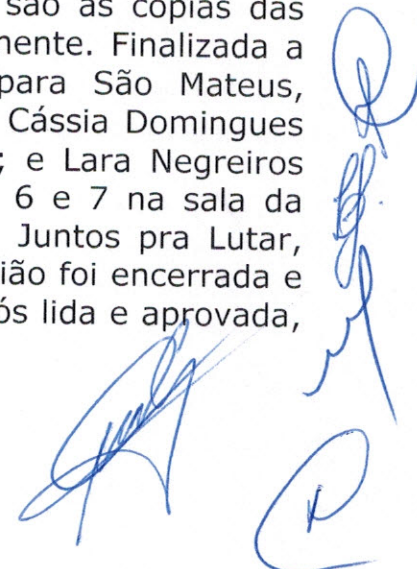 são as cópias das
mente. Finalizada a
para São Mateus,
Cássia Domingues
; e Lara Negreiros
6 e 7 na sala da
Juntos pra Lutar,
ião foi encerrada e
ós lida e aprovada,